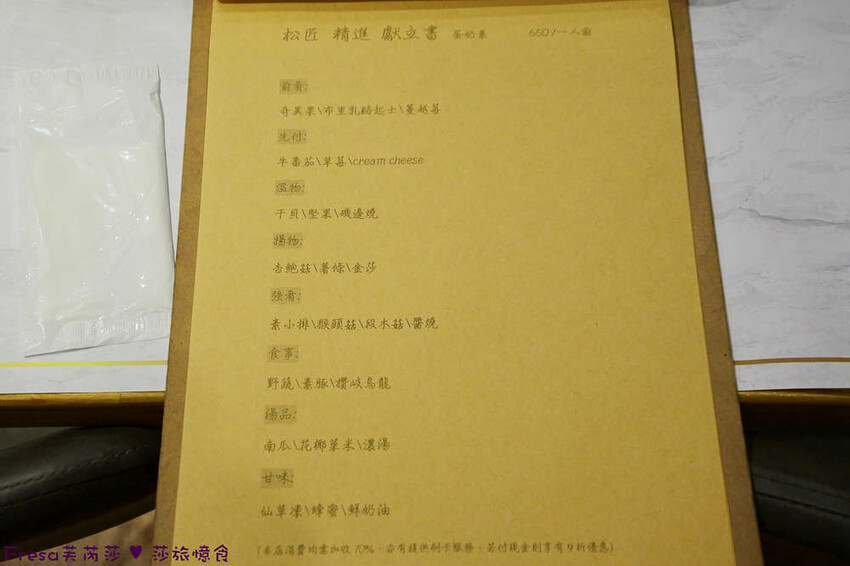 松匠 精進 獻立書 蛋奶素 650/一人套
前肴:
奇異果\布里乳酪起士\蔓越莓
先付:
牛番茄\草莓\cream cheese
溫物:
干貝\堅果\磯邊燒
揚物:
杏鮑菇\薯條\金莎
強肴:
素小排\猴頭菇\段木菇\醬燒
食事:
野蔬\素豚\讚岐烏龍
湯品:
南瓜\花椰菜米\濃湯
甘味:
仙草凍\蜂蜜\鮮奶油
(本店消費均需加收10%,亦有提供刷卡服務,若付現金則享有9折優惠)
Fresa芙芮莎 ♥ 莎旅憶食